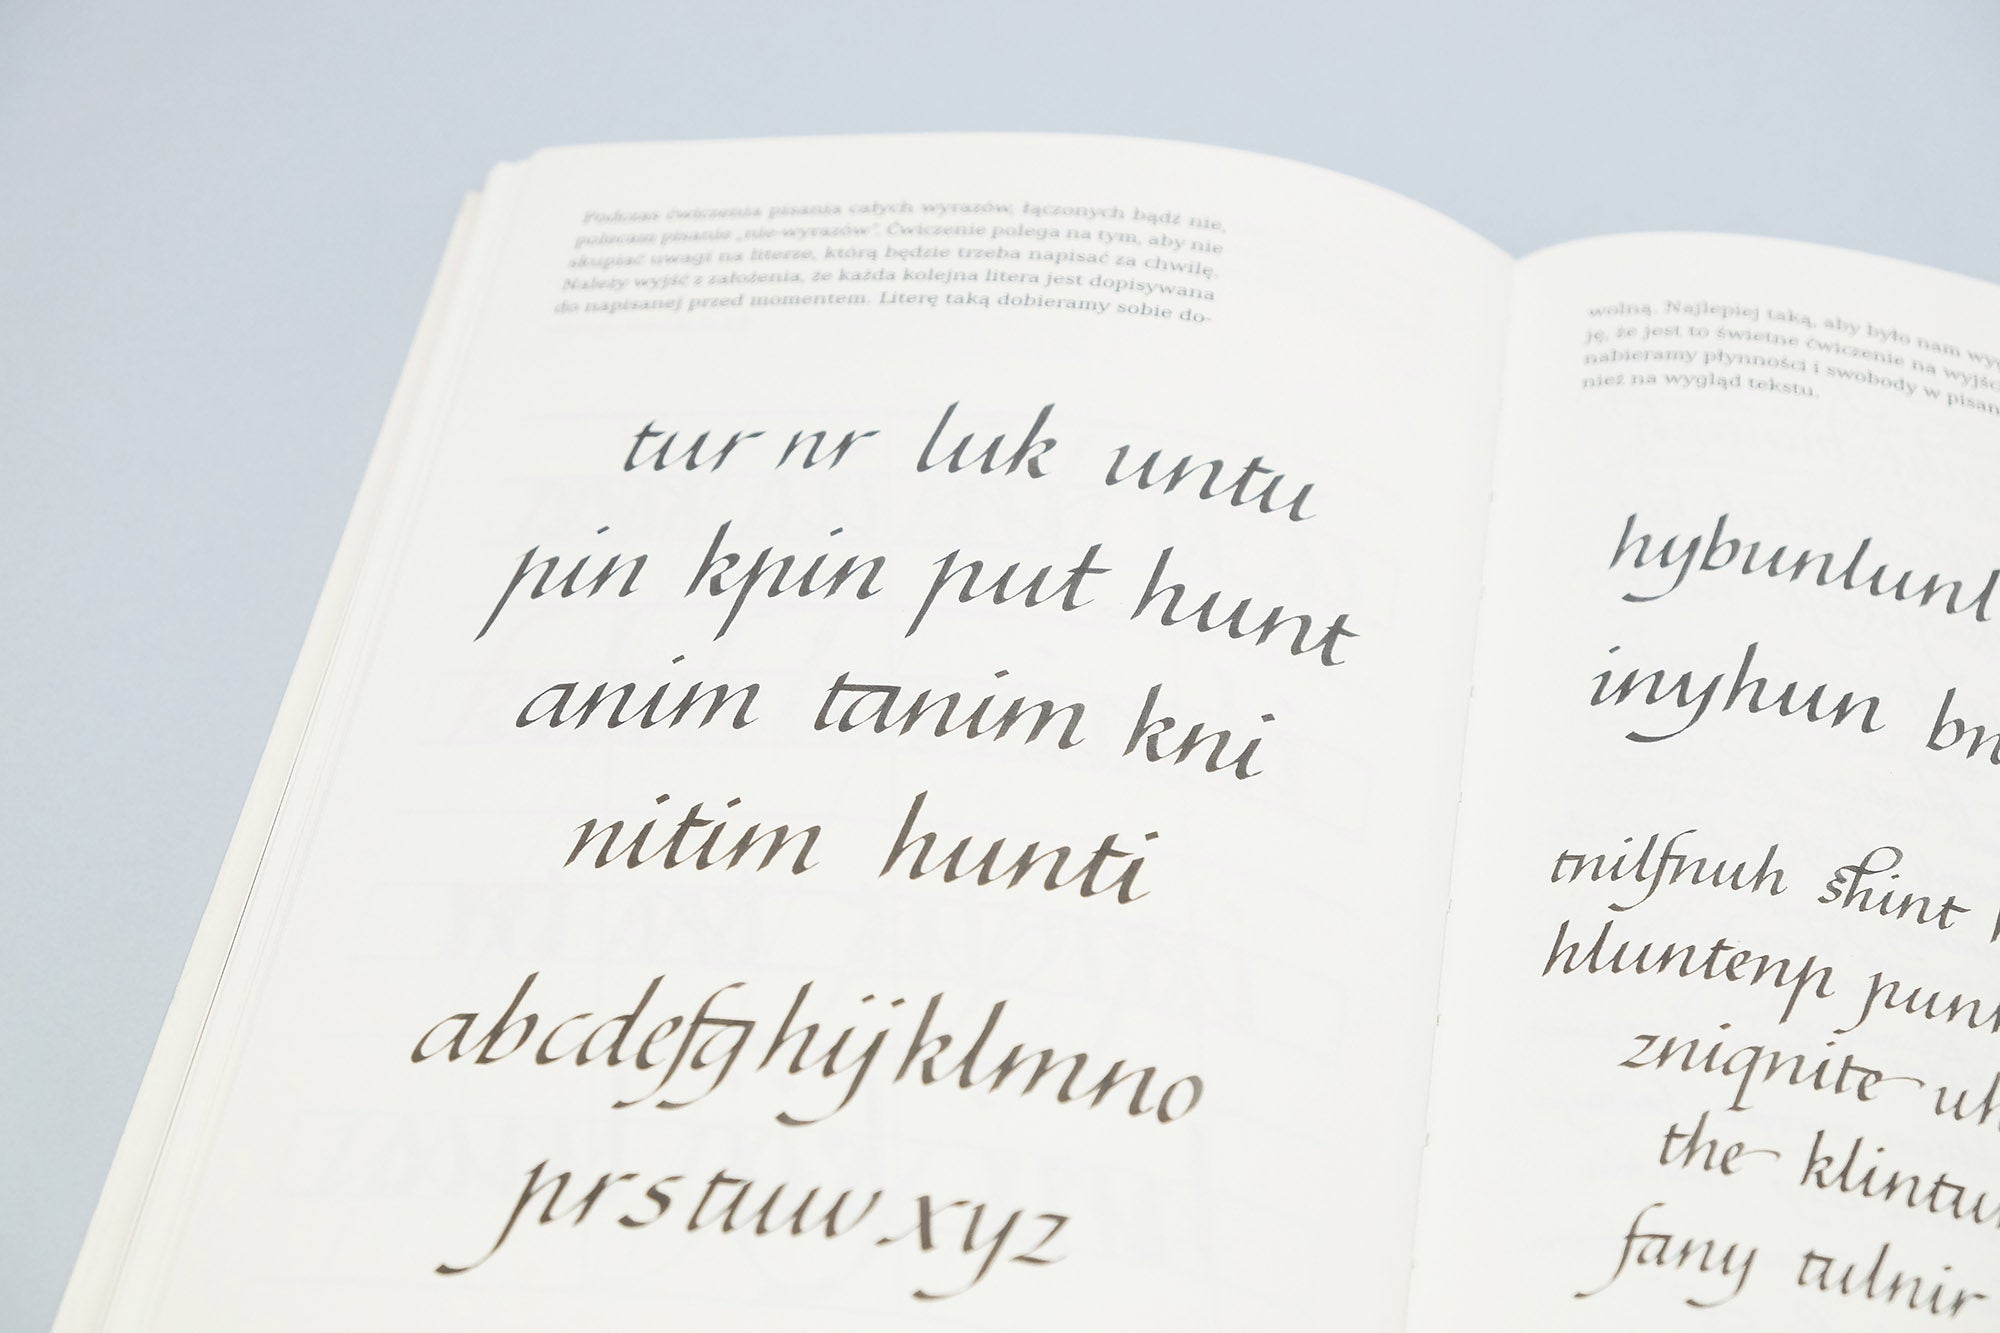 Podczas ćwiczenia pisania całych wyrazów, łączonych bądź nie,
polecam pisanie „nie-wyrazów”. Ćwiczenie polega na tym, aby nie
skupiać uwagi na literze, którą będzie trzeba napisać za chwilę.
Należy wyjść z założenia, że każda kolejna litera jest dopisywana
do napisanej przed momentem. Literę taką dobieramy sobie do-
tur nr luk untu
pin kpin put hunt
anim tanim kni
nitim hunti
abcdefghijklmno
prstuwxyz
wolną. Najlepiej taką, aby było nam
ję, że jest to świetne ćwiczenie na
nabieramy płynności i swobody w
nież na wygląd tekstu.
hybunlunl
inyhun
tnilfnuh shint
hluntenp
zniqnite
the
fany tulnir